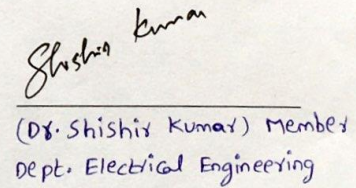 Shishir Kumar
(Dr. Shishir Kumar) Member
Dept. Electrical Engineering